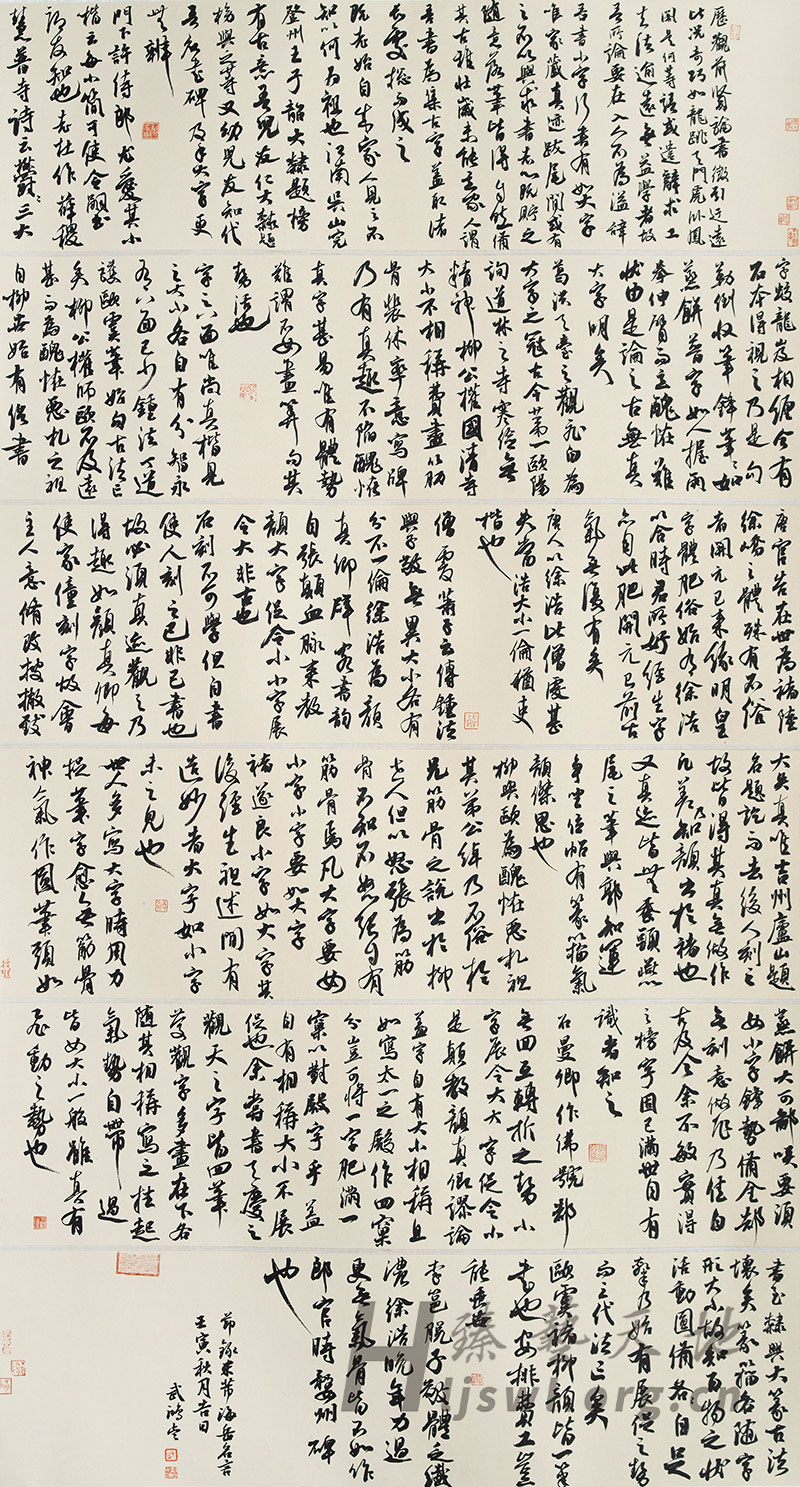 歷觀前賢論書徵引迂遠
比況奇巧如龍跳天門虎臥鳳
闕是何等語或遣辭求工
去法逾遠無益學者故
吾所論要在入人不為溢辭
吾書小字行書有如大字
唯家藏真迹跋尾間或有
之不以與求書者心既貯之
隨意落筆皆得自然備
其古雅壯歲未能立家人謂
吾書為集古字蓋取諸
長處總而成之
既老始自成家人見之不
知以何為祖也江南吳
登州王子韶大隸題榜
有古意吾兒友仁大隸題
榜與之等又幼兒友知代
吾名書碑及手大字更
無辨
門下許侍郎尤愛其小
楷云每小簡可使令嗣書
謂友知也老杜作薛稷
慧普寺詩云鬱鬱三大
字蛟龍岌相纏今有
石本得視之乃是勾
勒倒收筆鋒筆筆如
蒸餅普字如人握兩
拳伸臂而立醜怪難
狀由是論之古無真
大字明矣
葛洪天臺之觀飛白為
大字之冠古今第一歐陽
詢道林之寺寒儉無
精神柳公權國清寺
大小不相稱費盡筋
骨裴休率意寫牌
乃有真趣不陷醜怪
真字甚易唯有體勢
難謂不如畫算勻其
勢活也
字之八面唯尚真楷見
之大小各自有分智永
有八面已少鍾法丁道
護歐虞筆始勻古法亡
矣柳公權師歐不及遠
甚而為醜怪惡札之祖
自柳世始有俗書
唐官告在世為褚陸
徐嶠之體殊有不俗
者開元已來緣明皇
字體肥俗始有徐浩
以合時君所好經生字
亦自此肥開元已前古
氣無復有矣
唐人以徐浩比僧虔甚
失當浩大小一倫猶吏
楷也
僧虔蕭子雲傳鍾法
與子敬無異大小各有
分不一倫徐浩為顏
真卿辟客書韻
自張顛血脉來教
顏大字促令小小字展
令大非古也
石刻不可學但自書
使人刻之已非己書也
故必須真迹觀之乃
得趣如顏真卿每
使家僮刻字故會
主人意脩改披撇致
大失真唯吉州廬山題
名題訖而去後人刻之
故皆得其真無做作
凡差乃知顏出於褚也
又真迹皆無蠶頭燕
尾之筆與郭知運
爭坐位帖有篆籀氣
顏傑思也
柳與歐為醜怪惡札祖
其弟公綽乃不俗於
兄筋骨之說出於柳
世人但以怒張為筋
骨不知不怒張自有
筋骨焉凡大字要如
小字小字要如大字
褚遂良小字如大字其
後經生祖述間有
造妙者大字如小字
未之見也
世人多寫大字時用力
捉筆字愈無筋骨
神氣作圓筆頭如
蒸餅大可鄙笑要須
如小字鋒勢備全都
無刻意做作乃佳自
古及今余不敏實得
之榜字固已滿世自有
識者知之
石曼卿作佛號都
無回互轉折之勢小
字展令大大字促令小
是顛教顏真卿謬論
蓋字自有大小相稱且
如寫太一之殿作四窠
分豈可將一字肥滿一
窠以對殿字乎蓋
自有相稱大小不展
促也余嘗書天慶之
觀天之字皆四筆
慶觀字多畫在下各
隨其相稱寫之掛起
氣勢自帶過
皆如大小一般雖真有
飛動之勢也
書至隸興大篆古法
壞矣篆籀各隨字
形大小故知百物之狀
活動圓備各自足
隸乃始有展促之勢
而三代法亡矣
歐虞褚柳顏皆一筆
書也安排費工豈
能垂世
李邕脫子敬體乏纖
濃徐浩晚年力過
更無氣骨皆不如作
郎官時婺州碑
也
節錄米芾海岳名言
壬寅秋月吉日
武鴻
臻藝天地
Hjswh.org.cn